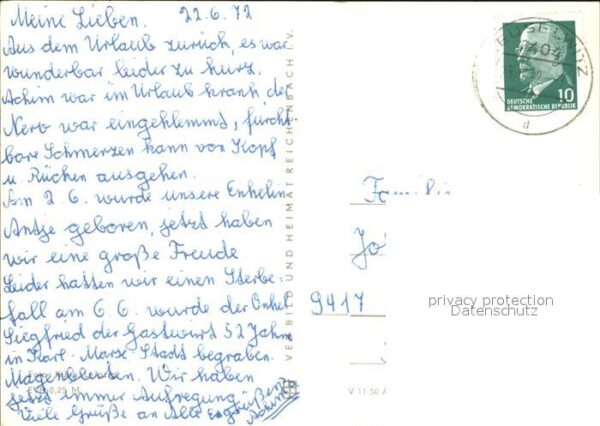 Meine Lieben. 22.6.72
Aus dem Urlaub zurück, es war
wunderbar leider zu kurz.
Achim war im Urlaub krank der
Nerv war eingeklemmt, fürcht
bare Schmerzen kann von Kopf
u. Rücken ausgehen.
Am 2.6. wurde unsere Enkelin
Antje geboren, jetzt haben
wir eine große Freude
Leider hatten wir einen Sterbe-
fall am 6.6. wurde der Onkel
Siegfried der Gastwirt 52 Jahre
in Karl-Marx-Stadt begraben.
Magenbluten. Wir haben
jetzt immer Aufregung
Viele Grüße an Alle
Achim
EVP 0,25 M
VERLAG BILD UND HEIMAT REICHENBACH I. V.
V 11 50
404
10
DEUTSCHE
DEMOKRATISCHE REPUBLIK
d
Familie
Jo
9417
privacy protection
Datenschutz